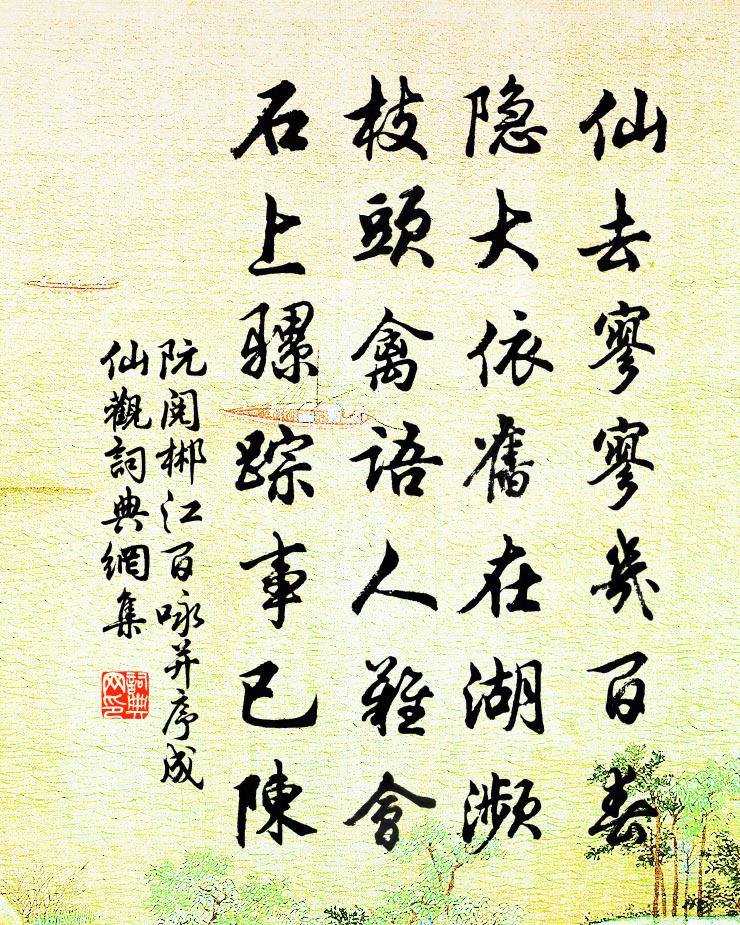 仙去寥寥幾百春
隐大依舊在湖濒
枝頭禽語人難會
石上骡踪事已陳
阮閱郴江百咏并序成
仙觀詞典網集
詞典
网印